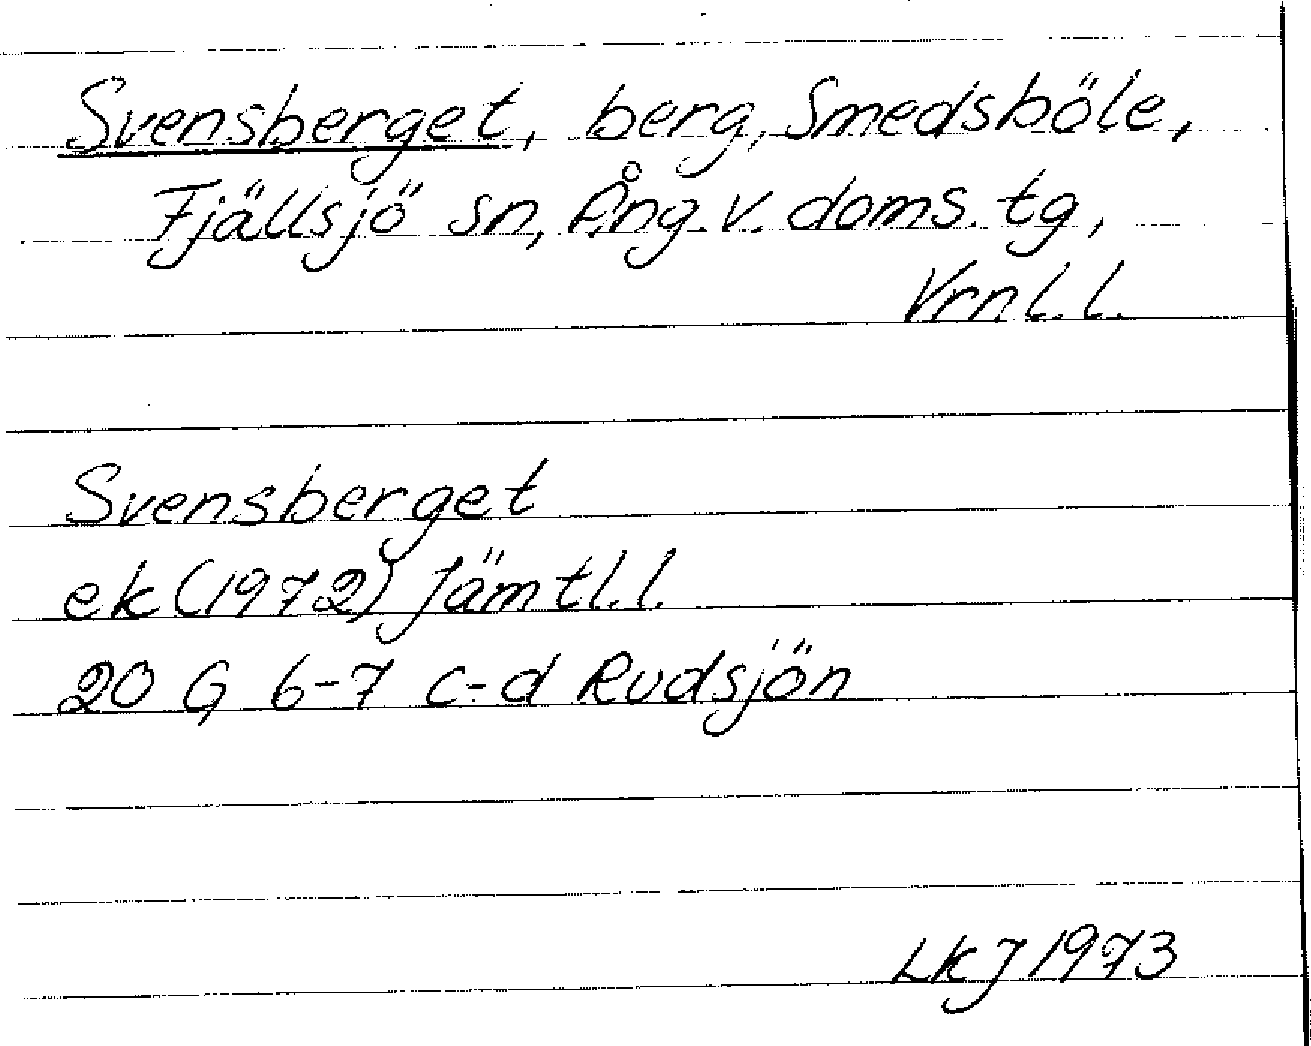 Svensberget, berg, Smedsböle,
Fjällsjö sn, Ång. v. doms. tg,
Vrnl. l.
Svensberget
ek (1972) Jämtl. l.
20 G 6-7 c-d Rudsjön
LKJ 1973